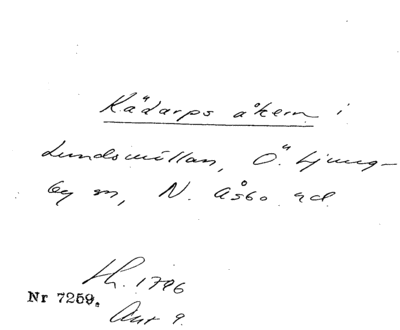 Kädarps åkern i
Lundsmöllan, Ö. Ljung-
by sn, N. Åsbo hd
Lh. 1796
Nr 7259.
Akt 9.